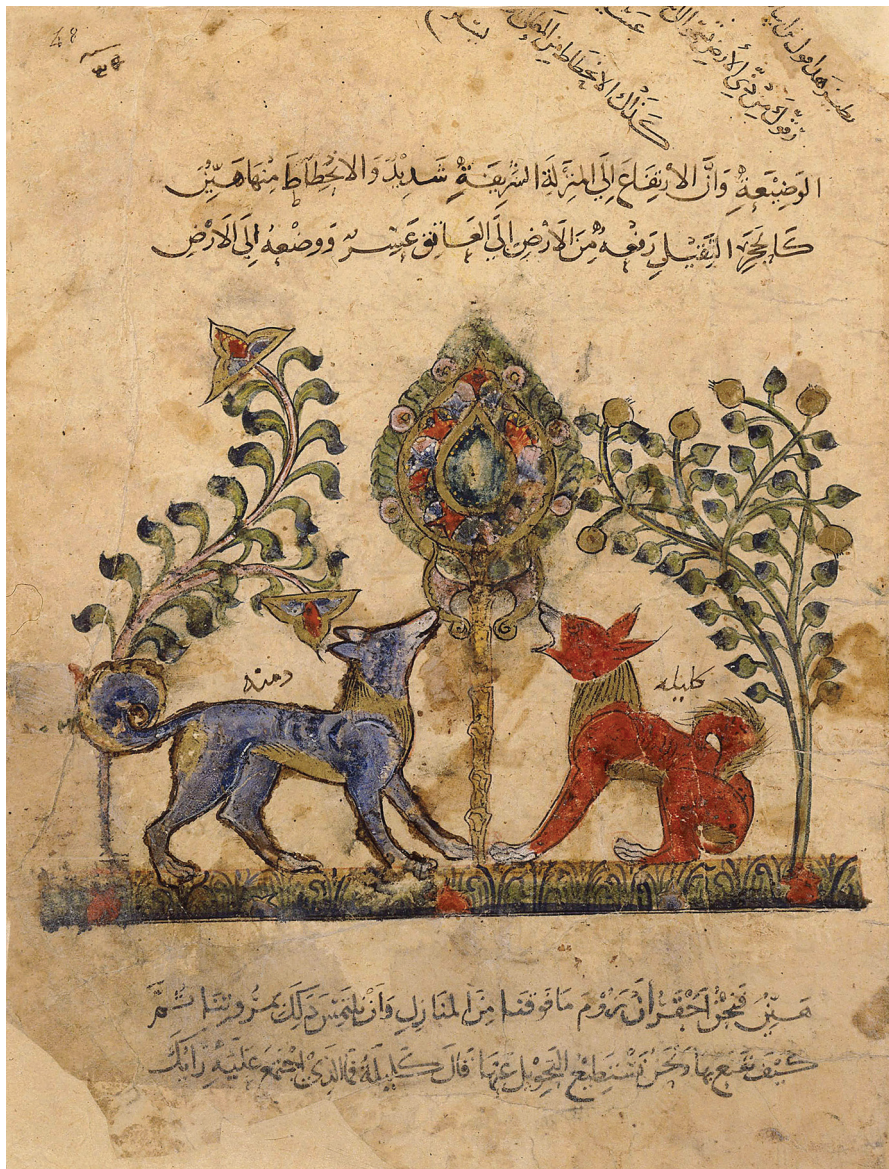 48
كذلك الانحطاط من
الوَضِيْعَةِ وَانَّ الارتِفَاعَ اِلَي المنزلَةِ الشَّرِيفَةِ شَدِيْدٌ وَالانْحِطَاطَ مِنهَا هَيِّنٌ
كَالحَجَرِ الثَّقِيْلِ رَفعُهُ مِنَ الاَرْضِ اِلَي العَاتِقِ عَسِرٌ وَوضْعُهُ اِلَي الاَرْضِ
دمنه
كليله
هَيِّنٌ فَنَحْنُ اَحَقُّ اَنْ نَرُوْمَ مَا فَوقَنَا مِنَ المنَازِلِ وَاَنْ نَلتَمِسَ ذَلِكَ بمُرُوتِنَا ثُمَّ
كَيْفَ نَقْنَع بِهَا وَنَحنُ نَسْتَطِيْعُ التحوِيلَ عَنْهَا قَالَ كَلِيْلَهُ فمَا الَّذِيْ اجْتَمَعَ عَلَيْهِ رَايُكَ